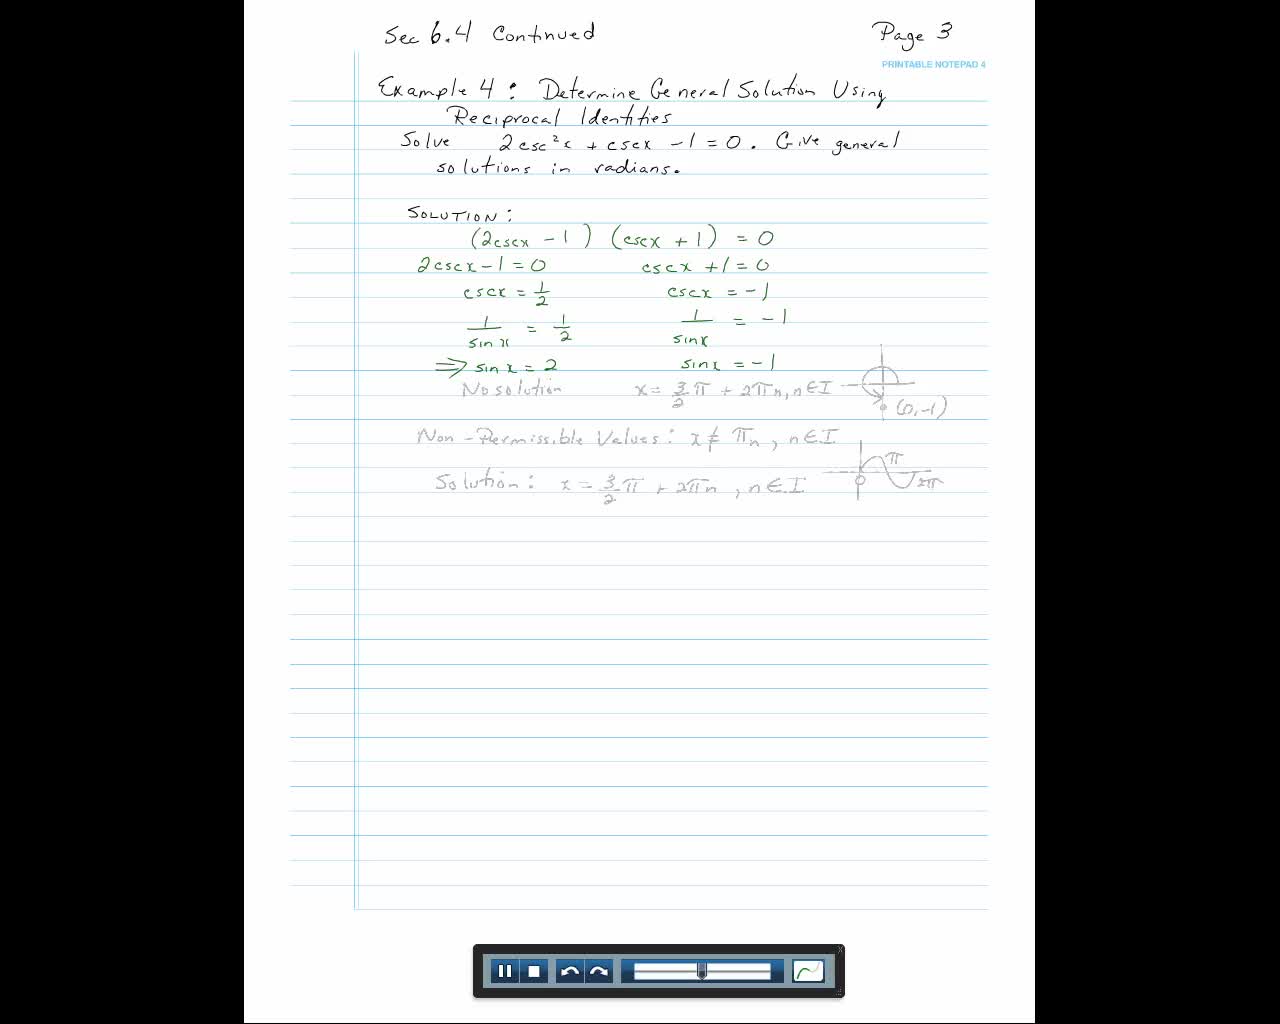 Sec 6.4 Continued Page 3
PRINTABLE NOTEPAD 4
Example 4: Determine General Solution Using
Reciprocal Identities
Solve 2csc²x + cscx - 1 = 0. Give general
solutions in radians.
SOLUTION:
(2cscx - 1) (cscx + 1) = 0
2cscx - 1 = 0 cscx + 1 = 0
cscx = 1/2 cscx = -1
1/sinx = 1/2 1/sinx = -1
⇒ sinx = 2 sinx = -1
No solution x = 3/2 π + 2πn, n∈I (0,-1)
Non-Permissible Values: x ≠ πn, n∈I
π
Solution: x = 3/2 π + 2πn, n∈I 0 2π